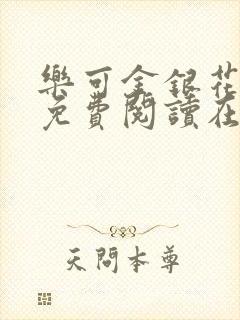 樂可金銀花
免費閱讀在
天問本尊